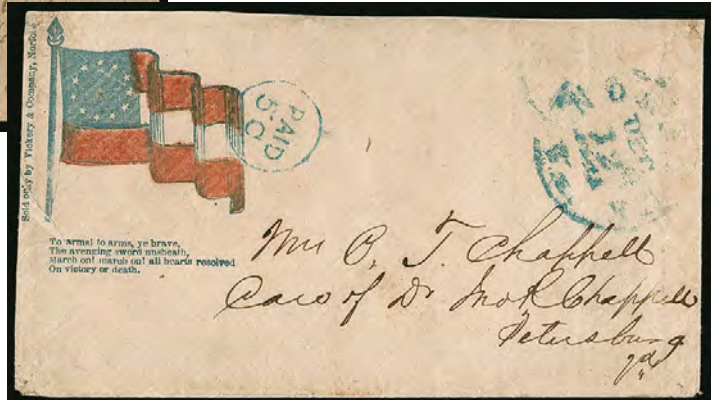 Sold only by Vickery & Company, Norfolk
PAID
5 C
To arms! to arms, ye brave,
The avenging sword unsheath,
March on! march on! all hearts resolved
On victory or death.
Chappell
Care of Dr Jno R Chappell
Petersburg